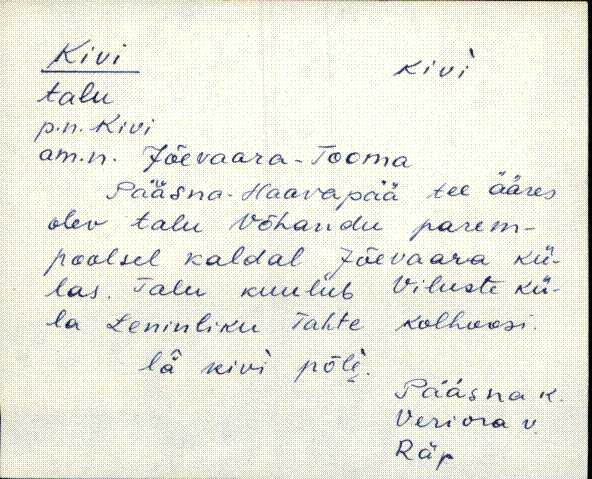 Kivi
kivì
talu
p.n. Kivi
am.n. Jõevaara-Tooma
Pääsna-Haavapää tee ääres
olev talu Võhandu parem-
poolsel kaldal Jõevaara kü-
las. Talu kuulub Viluste kü-
la Leninliku Tahte kolhoosi.
lâ kivì põlè.
Pääsna k.
Veriora v.
Räp